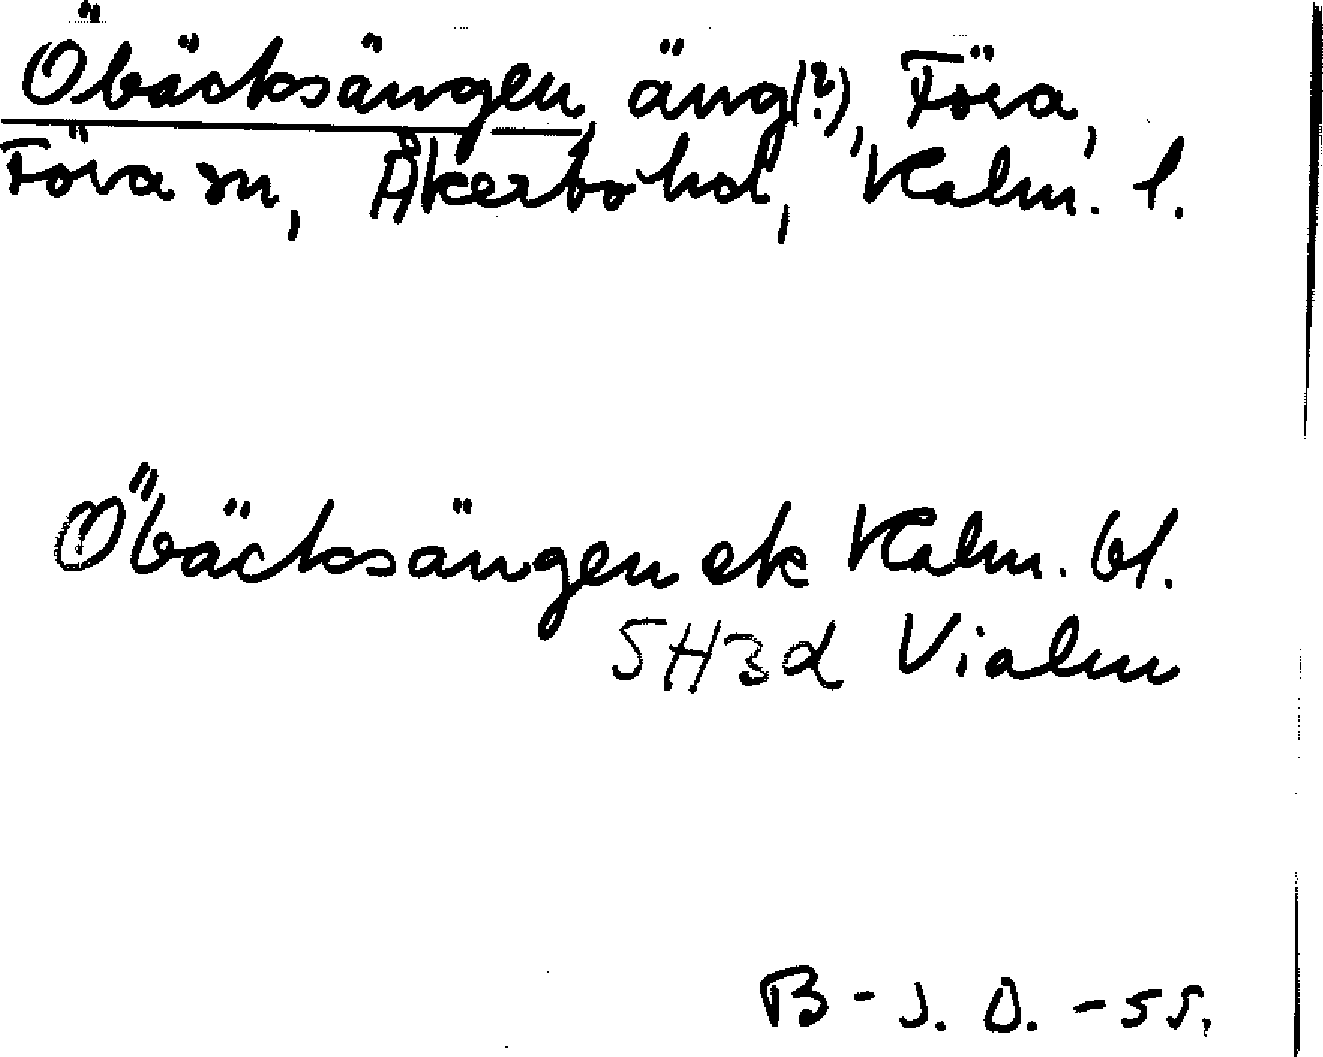 Öbäcksängen, äng(?), Föra,
Föra sn, Åkerbo hd, Kalm. l.
Öbäcksängen ek Kalm. bl.
5H3d Vialm
B-J. O. -55.